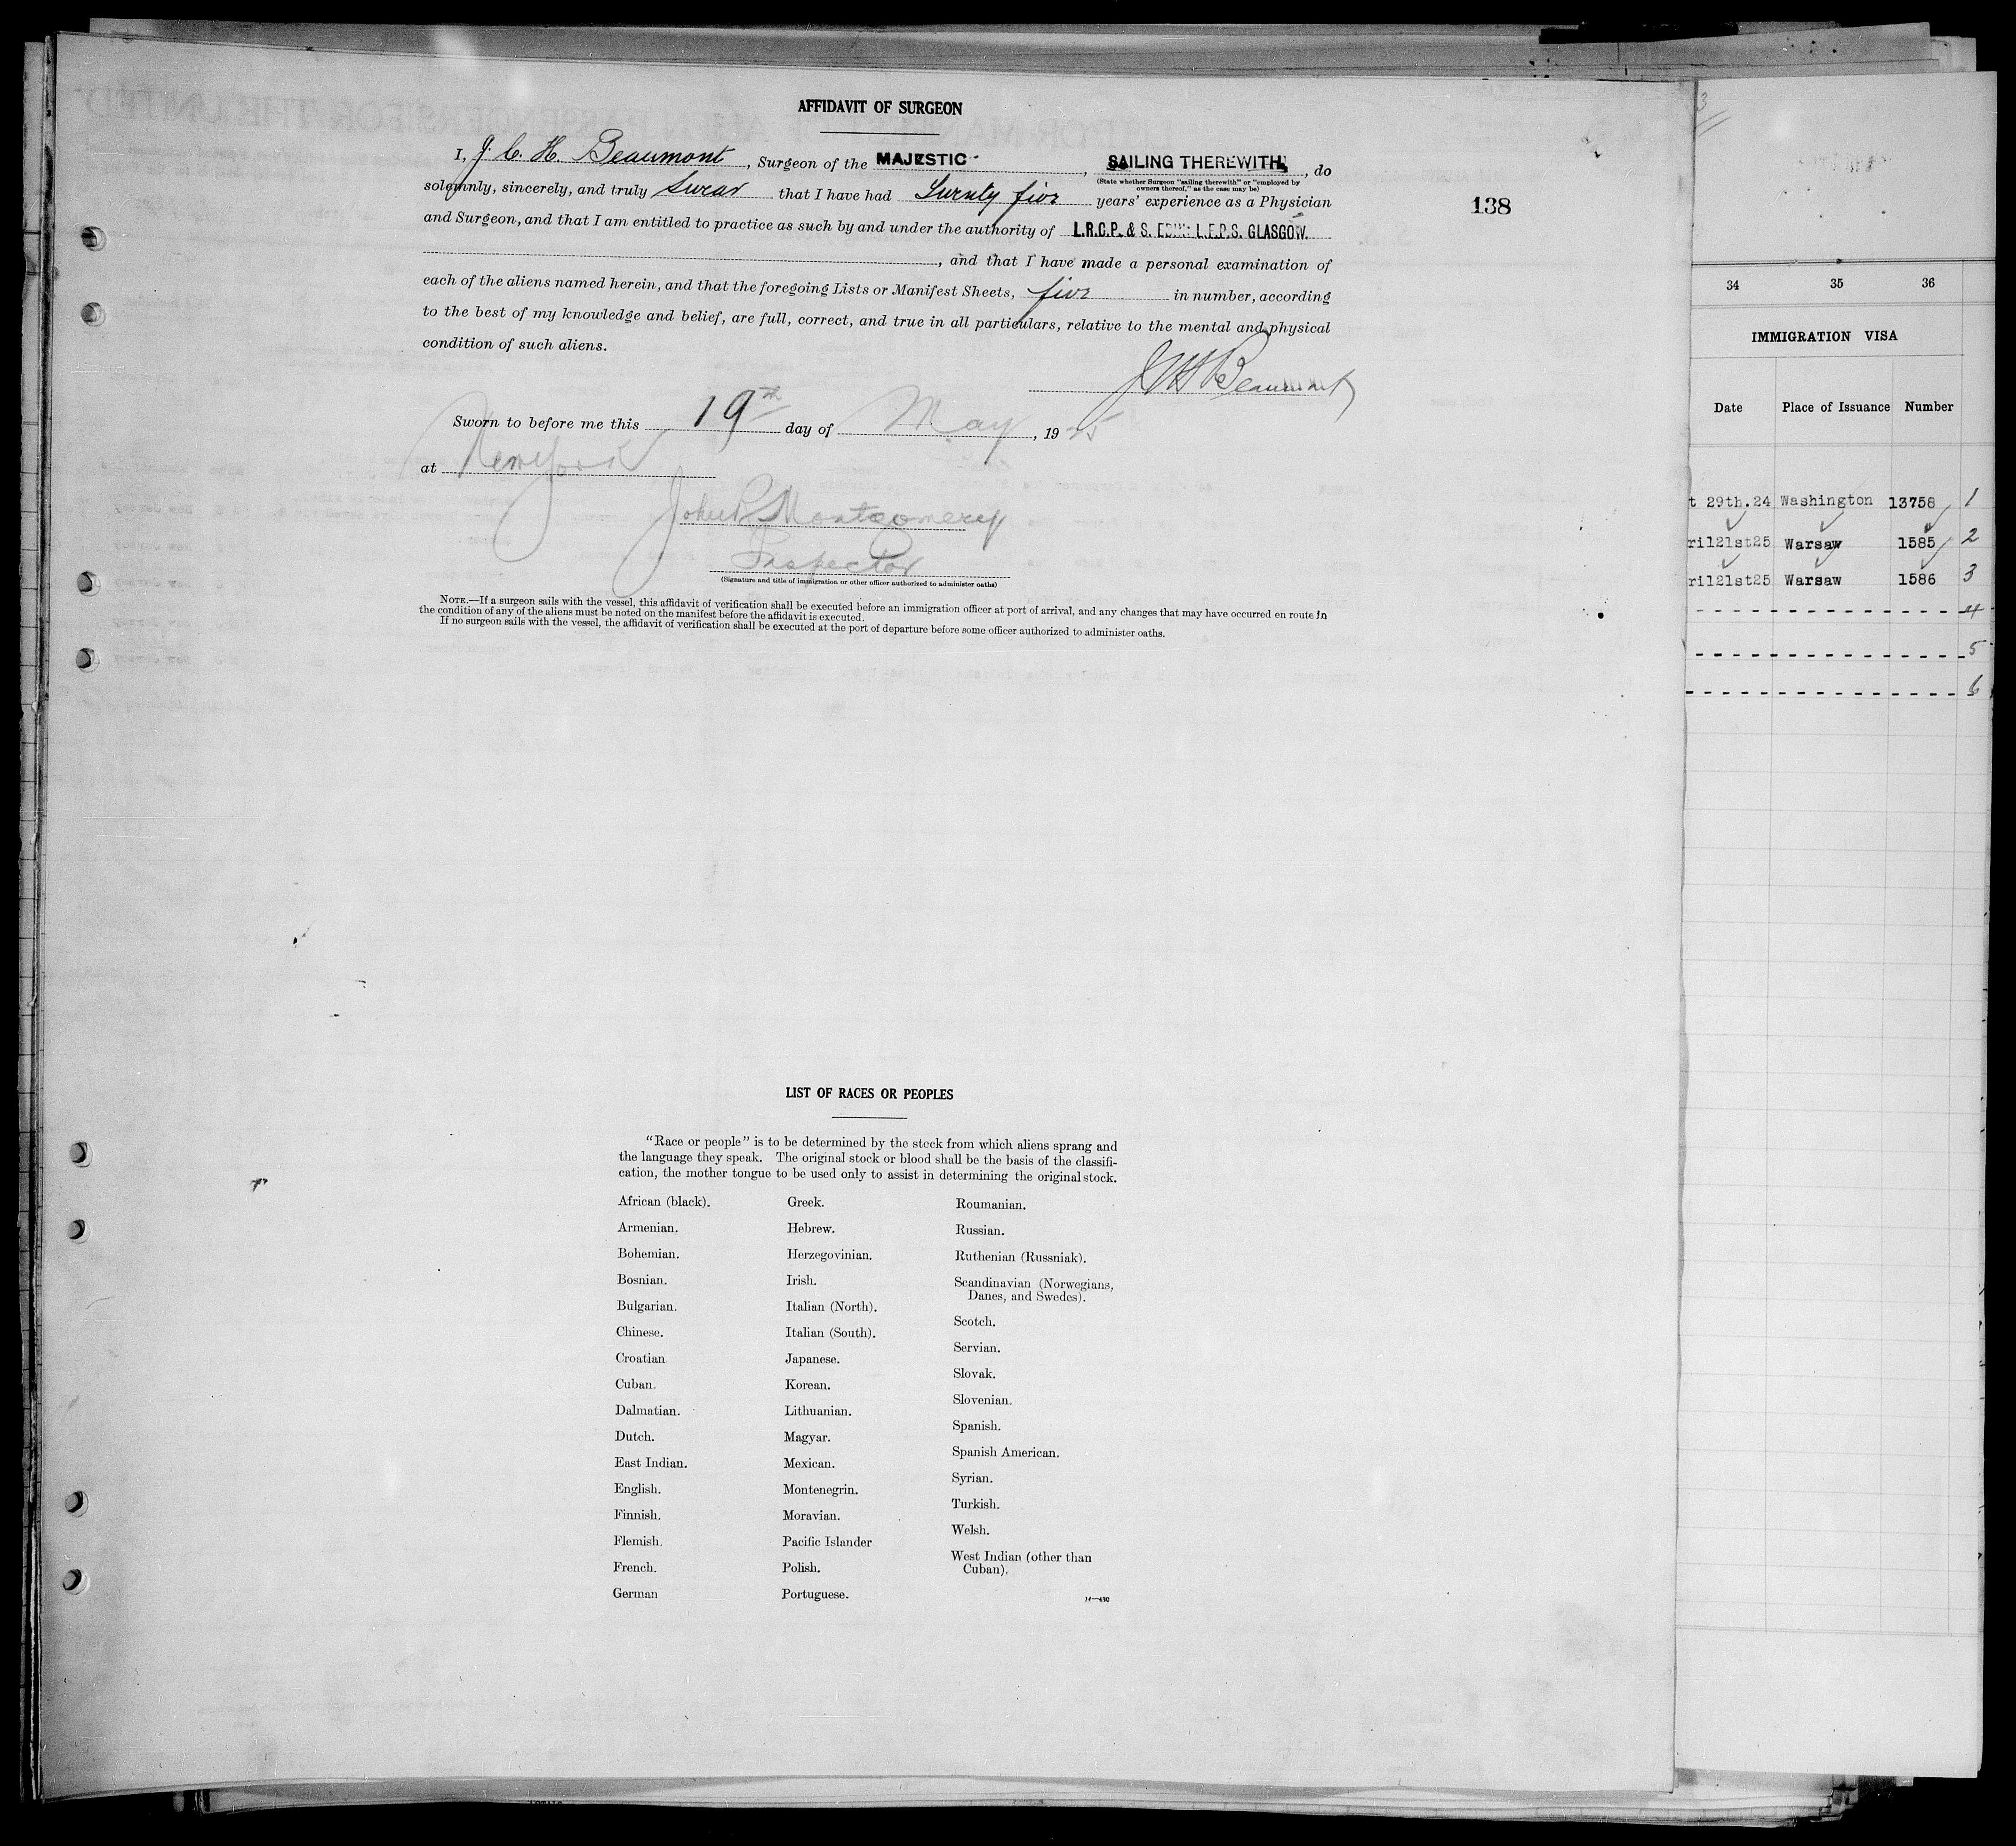 AFFIDAVIT OF SURGEON
I, J. C. H. Beaumont, Surgeon of the MAJESTIC, SAILING THEREWITH, do
(State whether Surgeon "sailing therewith" or "employed by
owners thereof," as the case may be)
solemnly, sincerely, and truly swear that I have had Twenty five years' experience as a Physician
138
and Surgeon, and that I am entitled to practice as such by and under the authority of L.R.C.P. & S. EDIN: L.F.P.S. GLASGOW.
, and that I have made a personal examination of
each of the aliens named herein, and that the foregoing Lists or Manifest Sheets, five in number, according
to the best of my knowledge and belief, are full, correct, and true in all particulars, relative to the mental and physical
condition of such aliens.
J C H Beaumont
Sworn to before me this 19th day of May, 1925
at New York
John P. Montgomery
Inspector
(Signature and title of immigration or other officer authorized to administer oaths)
NOTE.—If a surgeon sails with the vessel, this affidavit of verification shall be executed before an immigration officer at port of arrival, and any changes that may have occurred en route in
the condition of any of the aliens must be noted on the manifest before the affidavit is executed.
If no surgeon sails with the vessel, the affidavit of verification shall be executed at the port of departure before some officer authorized to administer oaths.
LIST OF RACES OR PEOPLES
"Race or people" is to be determined by the stock from which aliens sprang and
the language they speak. The original stock or blood shall be the basis of the classifi-
cation, the mother tongue to be used only to assist in determining the original stock.
African (black).
Armenian.
Bohemian.
Bosnian.
Bulgarian.
Chinese.
Croatian
Cuban.
Dalmatian.
Dutch.
East Indian.
English.
Finnish.
Flemish.
French.
German
Greek.
Hebrew.
Herzegovinian.
Irish.
Italian (North).
Italian (South).
Japanese.
Korean.
Lithuanian.
Magyar.
Mexican.
Montenegrin.
Moravian.
Pacific Islander
Polish.
Portuguese.
Roumanian.
Russian.
Ruthenian (Russniak).
Scandinavian (Norwegians,
Danes, and Swedes).
Scotch.
Servian.
Slovak.
Slovenian.
Spanish.
Spanish American.
Syrian.
Turkish.
Welsh.
West Indian (other than
Cuban).
14—430
3
34 35 36
IMMIGRATION VISA
Date Place of Issuance Number
t 29th.24 Washington 13758 1
ril21st25 Warsaw 1585 2
ril21st25 Warsaw 1586 3
4
5
6